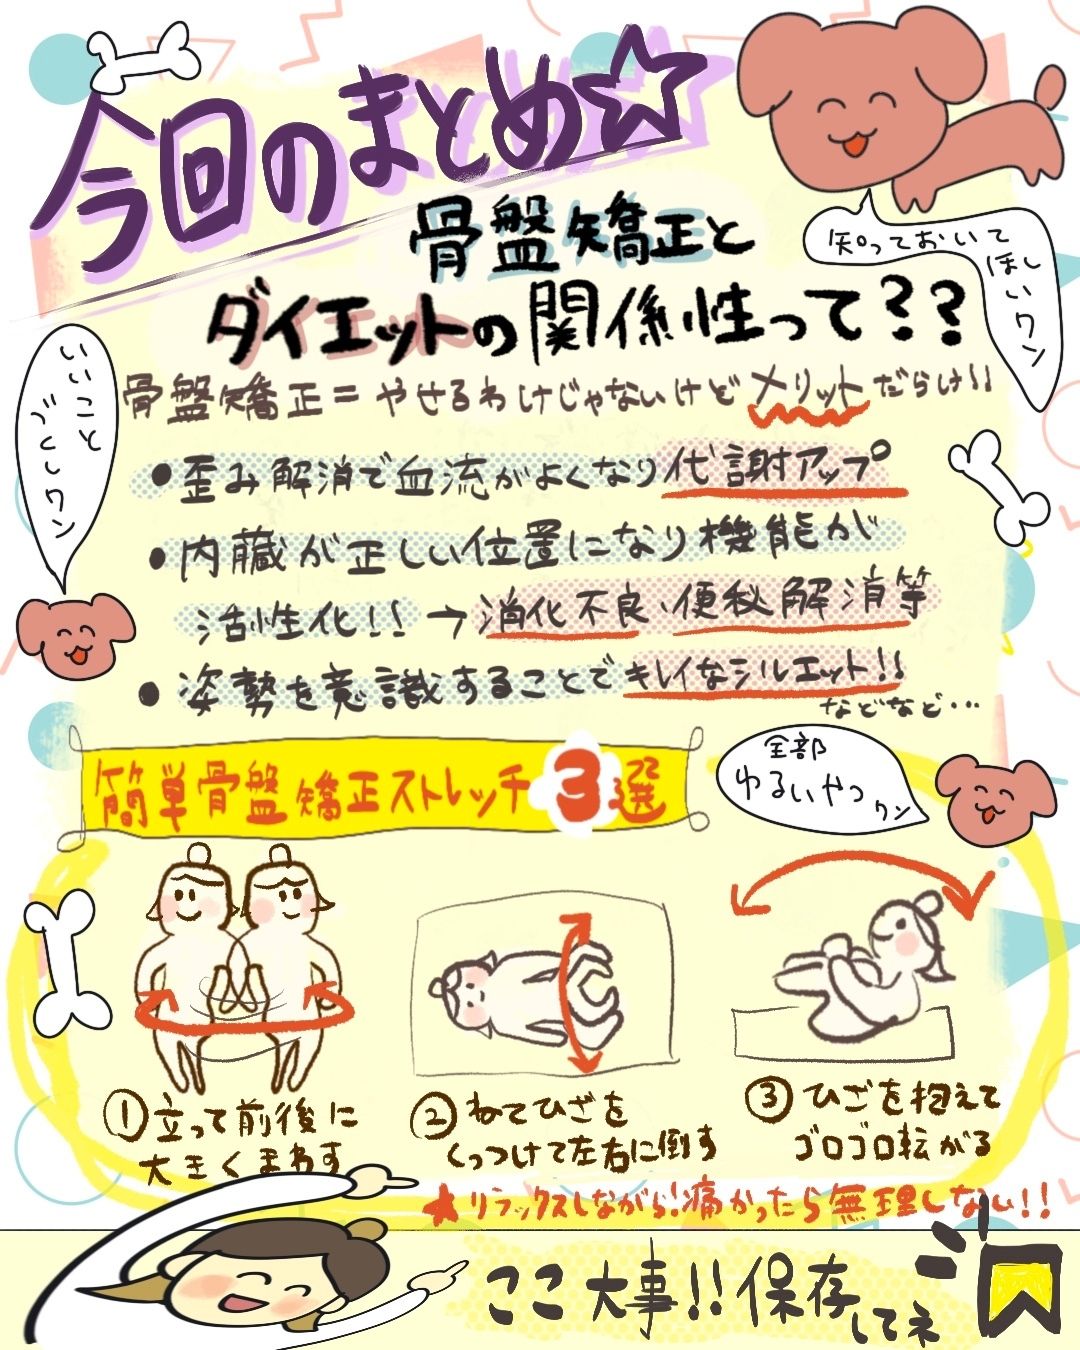 今回のまとめ☆
知っておいて
ほしいワン
骨盤矯正と
ダイエットの関係性って??
いいこと
づくしワン
骨盤矯正=やせるわけじゃないけどメリットだらけ!!
•歪み解消で血流がよくなり代謝アップ
•内臓が正しい位置になり機能が
活性化!!→消化不良、便秘解消等
•姿勢を意識することでキレイなシルエット!!
などなど…
簡単骨盤矯正ストレッチ3選
全部
ゆるいやつワン
①立って前後に
大きくまわす
②ねてひざを
くっつけて左右に倒す
③ひざを抱えて
ゴロゴロ転がる
★リラックスしながら!痛かったら無理しない!!
ここ大事!!保存してネ